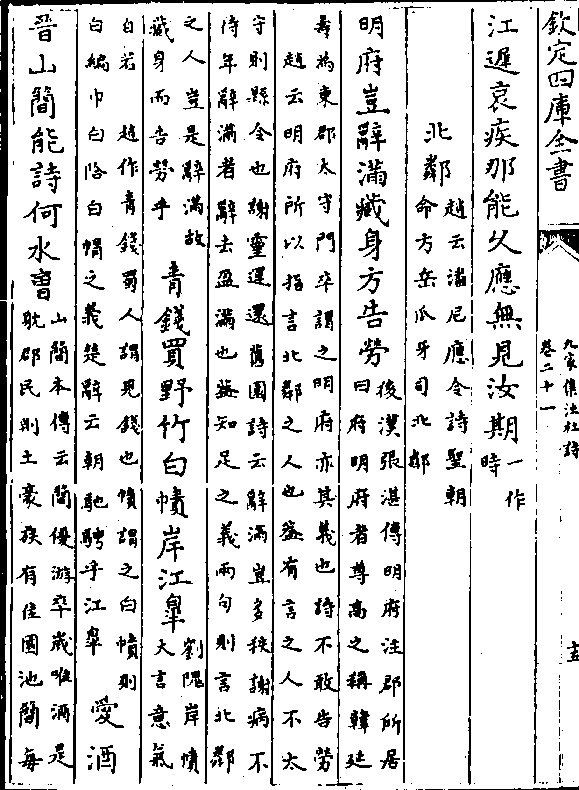 欽定四庫全書
九家集注杜詩
卷二十一
十五
江遲衰疾那能久應無見汝期一作時
北鄰趙云潘尼應令詩聖朝命方岳爪牙司北鄰
明府豈辭滿藏身方告勞後漢張湛傳明府注郡所居曰府明府者尊高之稱韓延
壽為東郡太守門卒謂之明府亦其義也詩不敢告勞
趙云明府所以指言北鄰之人也蓋有言之人不太
守則縣令也謝靈運還舊園詩云辭滿豈多秩謝病不
待年辭滿者辭去盈滿也蓋知足之義兩句則言北鄰
之人豈是辭滿故藏身而告勞乎青錢買野竹白幘岸江臯劉隗岸幘大言意氣
自若趙作青錢蜀人謂見錢也幘謂之白幘則
白編巾白帢白㡌之義楚辭云朝馳騁乎江臯愛酒
晉山簡能詩何水曹山簡本傳云簡優游卒歲唯酒是耽郡民則土豪族有佳園池簡每